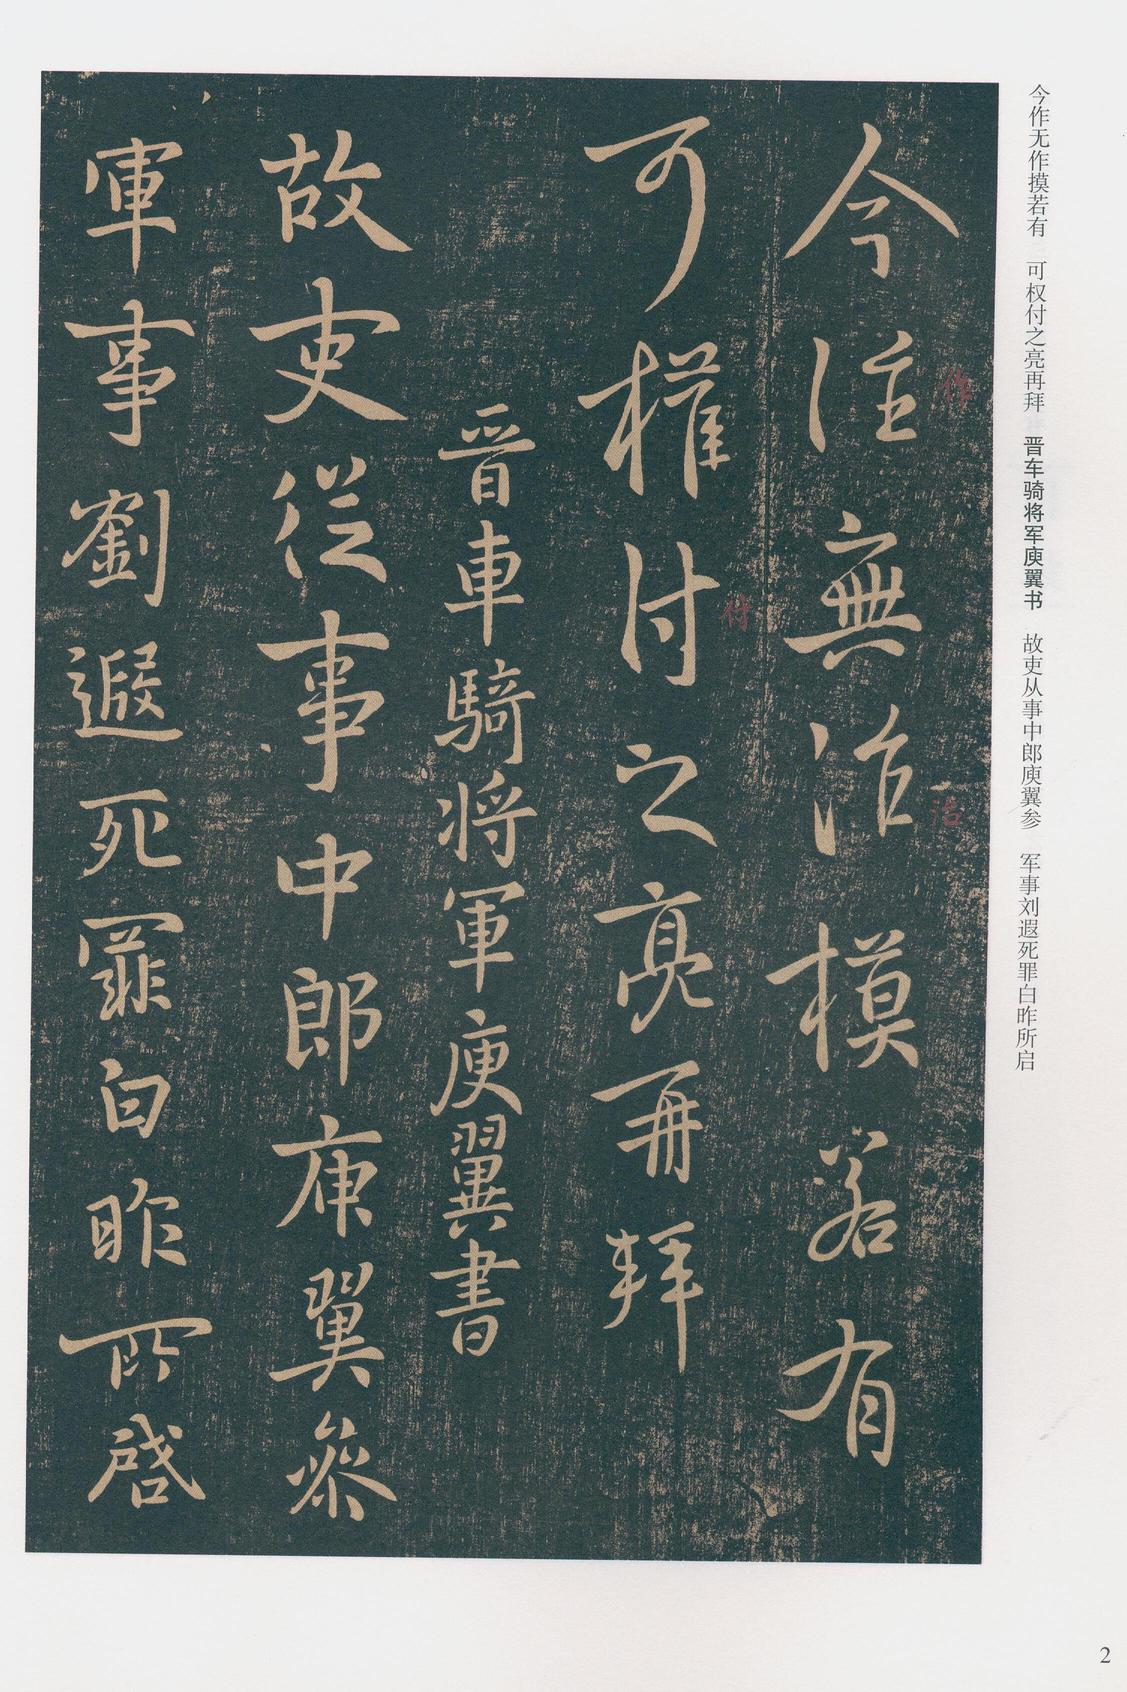 今作无作摸若有　可权付之亮再拜　晋车骑将军庾翼书　故吏从事中郎庾翼参　军事刘遐死罪白昨所启
今註無治模若有
作
治
可權付之亮再拜
付
晉車騎将軍庾翼書
故吏從事中郎庾翼參
軍事劉遐死罪白昨所啓
2